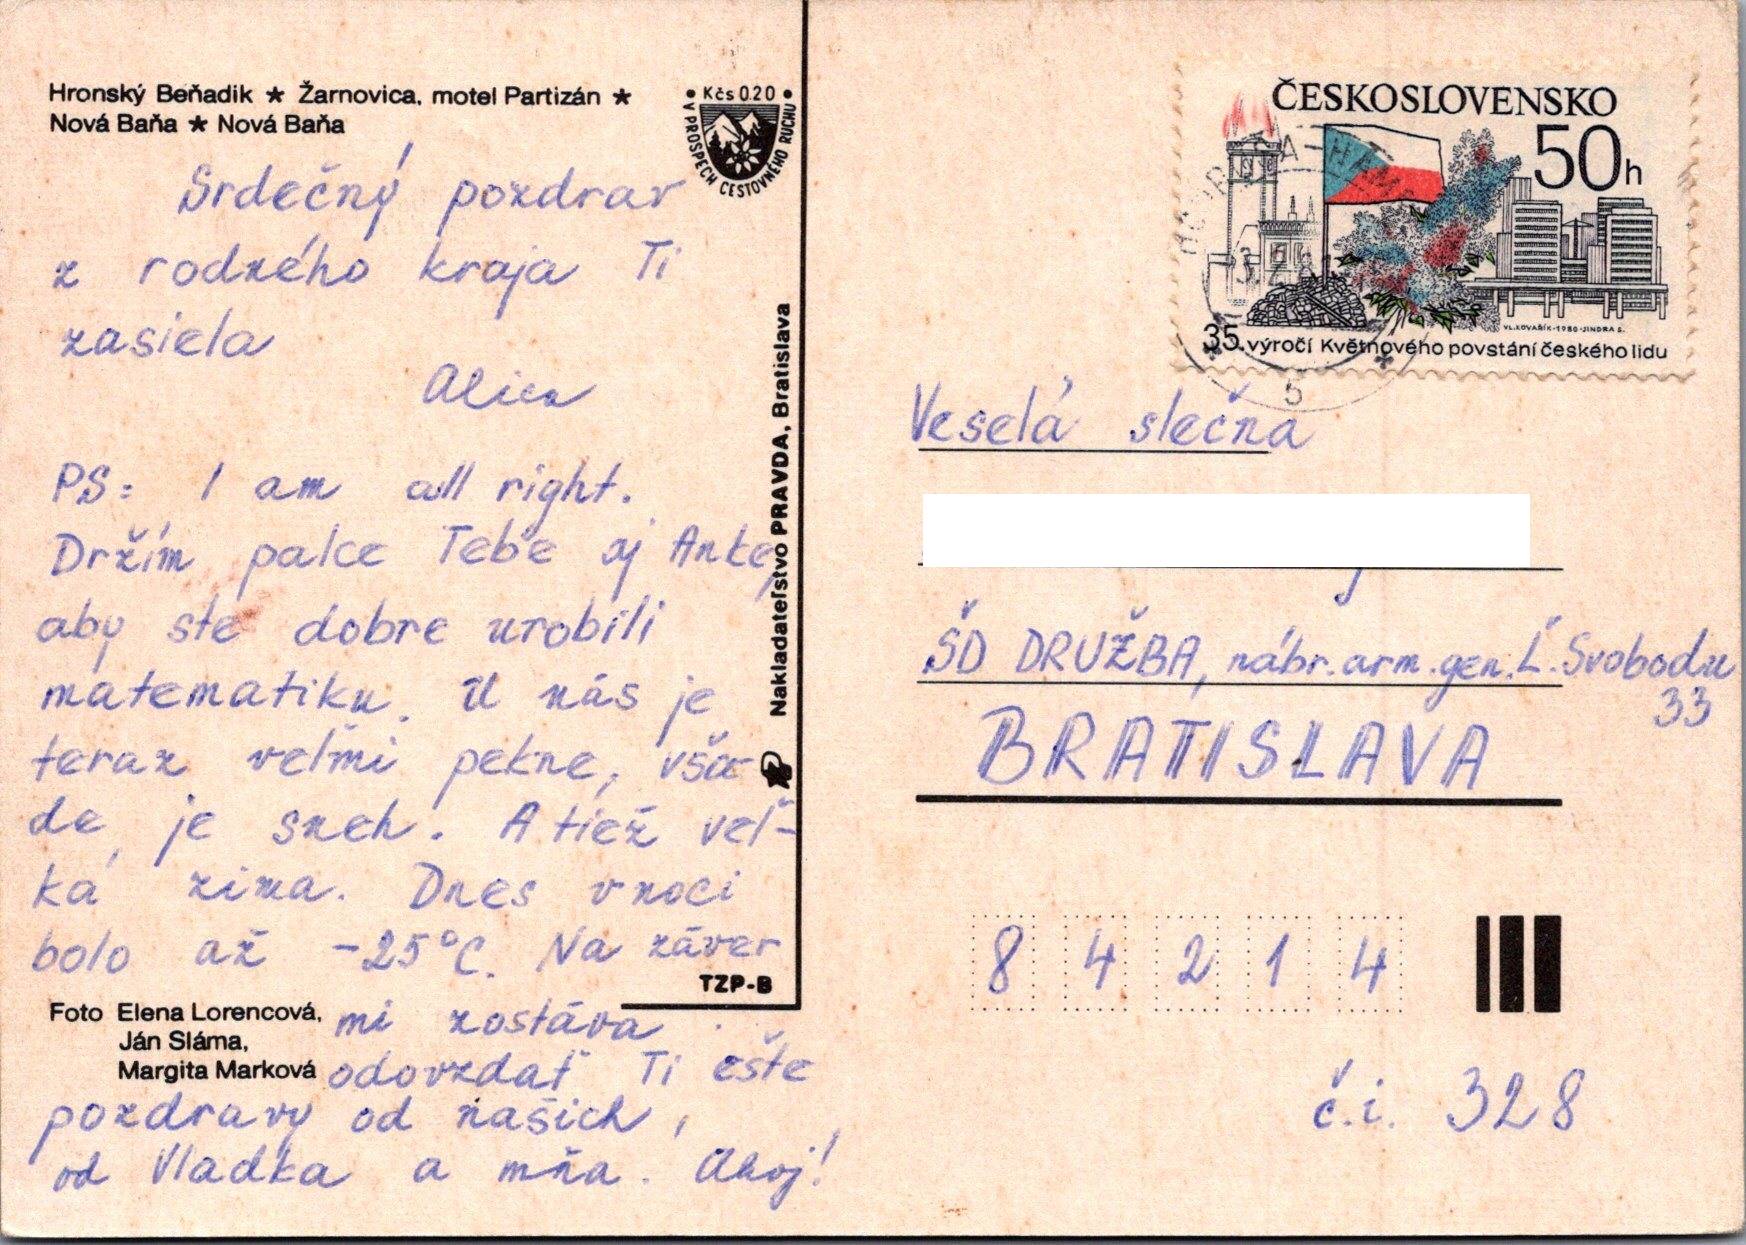 Hronský Beňadik ★ Žarnovica, motel Partizán ★
Nová Baňa ★ Nová Baňa
• Kčs 0.20 •
V PROSPECH CESTOVNÉHO RUCHU
Srdečný pozdrav
z rodného kraja Ti
zasiela
Alica
PS: I am all right.
Držím palce Tebe aj Anke,
aby ste dobre urobili
matematiku. U nás je
teraz veľmi pekne, vša-
de je sneh. A tiež veľ-
ká zima. Dnes v noci
bolo až -25°C. Na záver
mi zostáva
odovzdať Ti ešte
pozdravy od našich,
od Vladka a mňa. Ahoj!
Nakladateľstvo PRAVDA, Bratislava
TZP-B
Foto Elena Lorencová,
Ján Sláma,
Margita Marková
ČESKOSLOVENSKO
50h
VL.KOVAŘÍK-1980-JINDRA S.
35. výročí Květnového povstání českého lidu
5
Veselá slečna
ŠD DRUŽBA, nábr. arm. gen. Ľ. Svobodu
33
BRATISLAVA
84214
č.i. 328